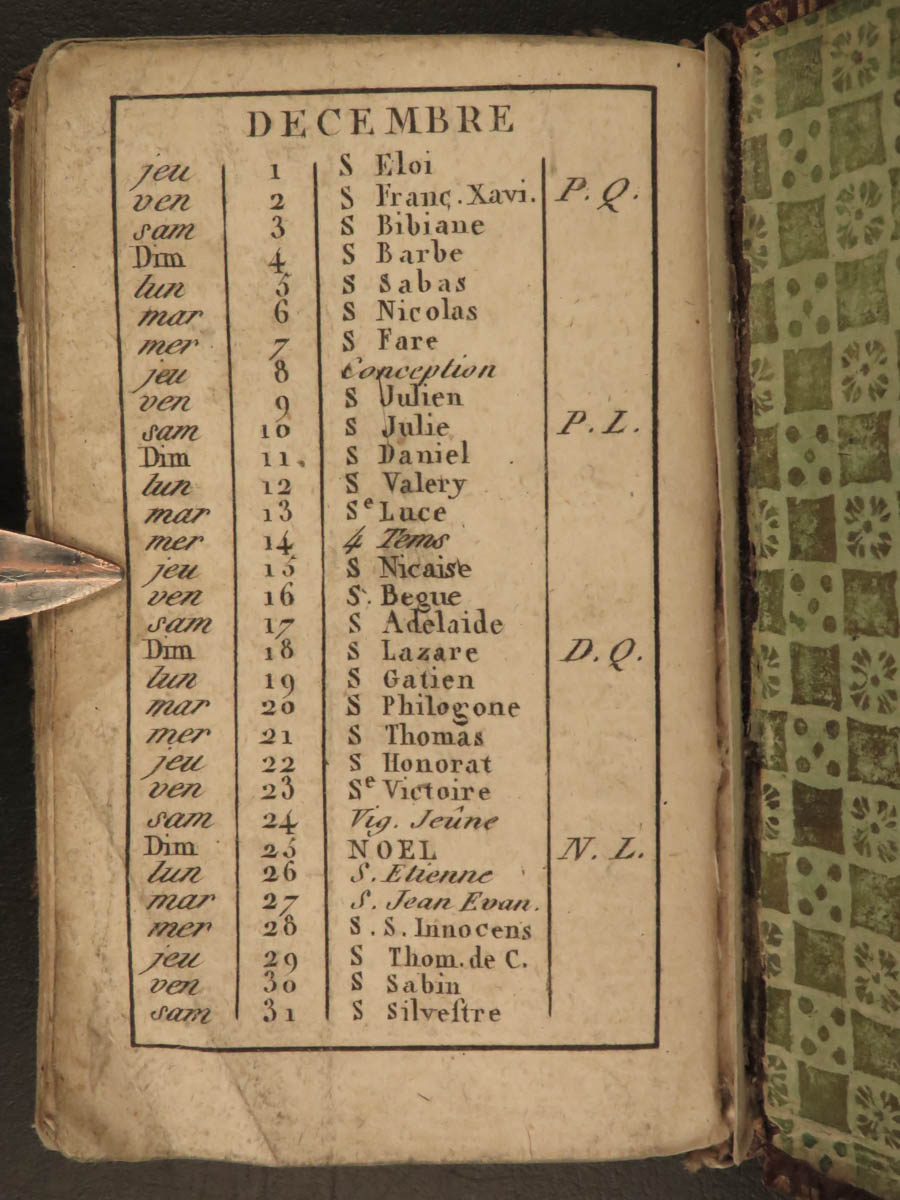 DECEMBRE
jeu 1 S Eloi
ven 2 S Franç. Xavi. P. Q.
sam 3 S Bibiane
Dim 4 S Barbe
lun 5 S Sabas
mar 6 S Nicolas
mer 7 S Fare
jeu 8 Conception
ven 9 S Julien
sam 10 S Julie P. L.
Dim 11 S Daniel
lun 12 S Valery
mar 13 Se Luce
mer 14 4 Tems
jeu 15 S Nicaise
ven 16 S. Begue
sam 17 S Adelaide
Dim 18 S Lazare D. Q.
lun 19 S Gatien
mar 20 S Philogone
mer 21 S Thomas
jeu 22 S Honorat
ven 23 Se Victoire
sam 24 Vig. Jeûne
Dim 25 NOEL N. L.
lun 26 S. Etienne
mar 27 S. Jean Evan.
mer 28 S. S. Innocens
jeu 29 S Thom. de C.
ven 30 S Sabin
sam 31 S Silveſtre